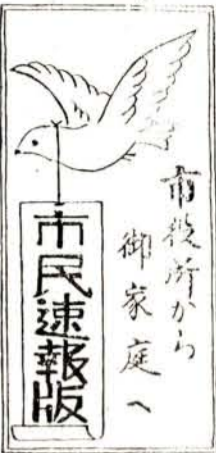 市役所から
御家庭へ
市民速報版